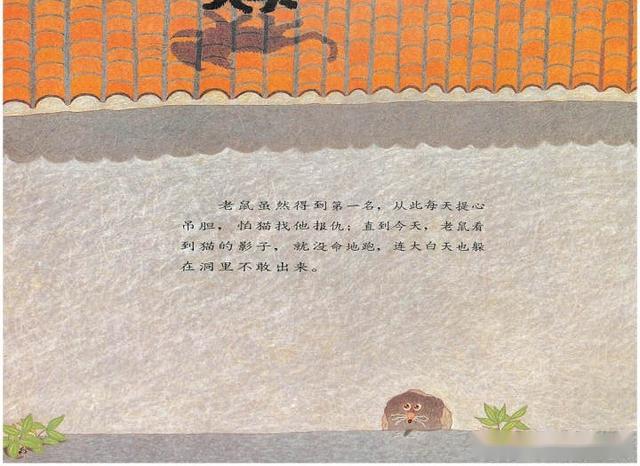 老鼠虽然得到第一名，从此每天提心
吊胆，怕猫找他报仇；直到今天，老鼠看
到猫的影子，就没命地跑，连大白天也躲
在洞里不敢出来。